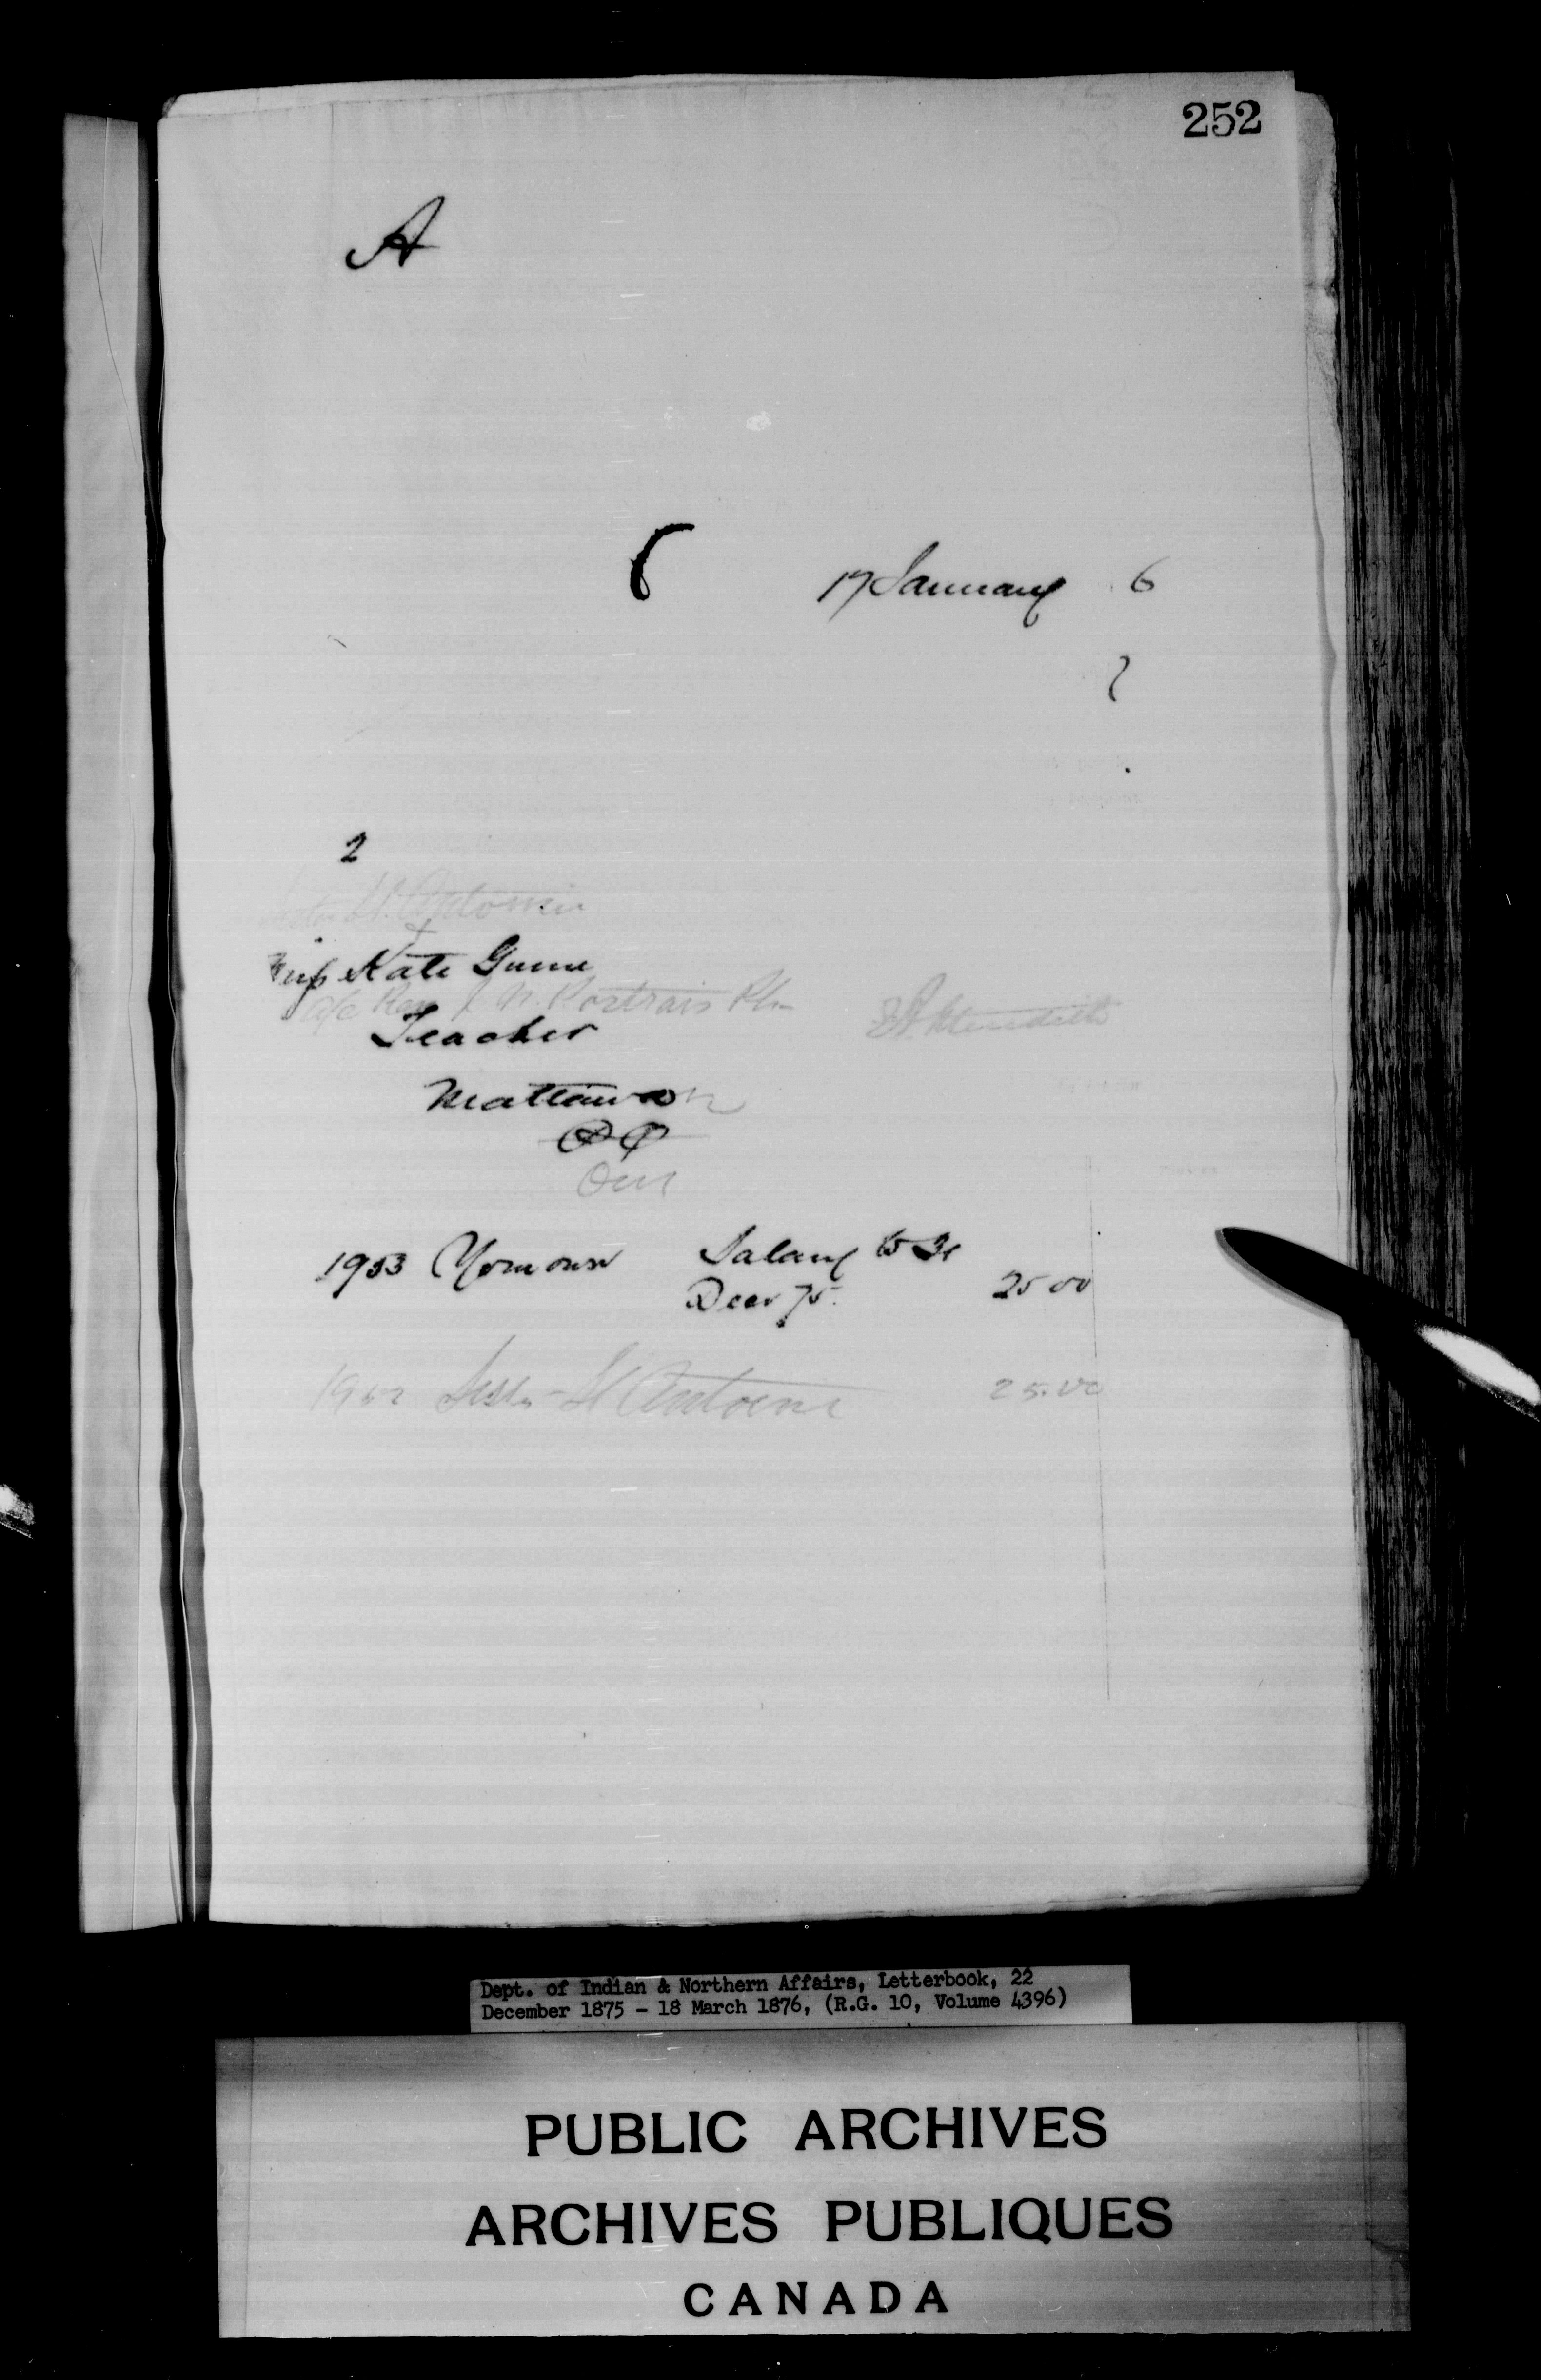 252
A
17 January 6
2
Sister St. Antoine
&
Miss Kate Gunn
c/o Rev. J. N.
Teacher
Mattawan
Ont
1953 Yourself Salary to 31
Decr 75. 25 00
1952 Sister St Antoine 25.00
Dept. of Indian & Northern Affairs, Letterbook, 22
December 1875 - 18 March 1876, (R.G. 10, Volume 4396)
PUBLIC ARCHIVES
ARCHIVES PUBLIQUES
CANADA